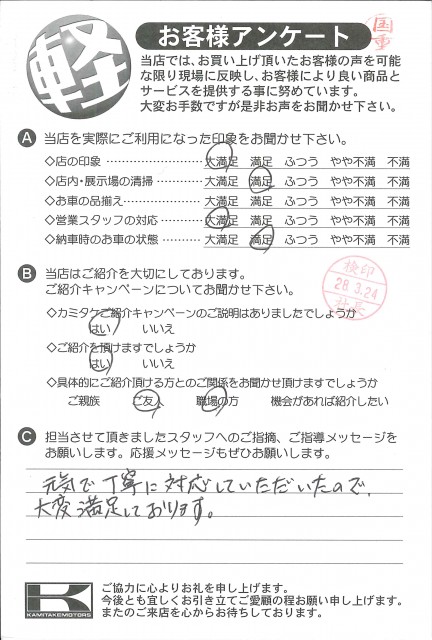 軽
お客様アンケート
国重
当店では、お買い上げ頂いたお客様の声を可能
な限り現場に反映し、お客様により良い商品と
サービスを提供する事に努めています。
大変お手数ですが是非お声をお聞かせ下さい。
A 当店を実際にご利用になった印象をお聞かせ下さい。
◇店の印象 ……………………… 大満足 満足 ふつう やや不満 不満
◇店内・展示場の清掃………… 大満足 満足 ふつう やや不満 不満
◇お車の品揃え………………… 大満足 満足 ふつう やや不満 不満
◇営業スタッフの対応………… 大満足 満足 ふつう やや不満 不満
◇納車時のお車の状態………… 大満足 満足 ふつう やや不満 不満
B 当店はご紹介を大切にしております。
ご紹介キャンペーンについてお聞かせ下さい。
検印
28.3.24
社長
◇カミタケご紹介キャンペーンのご説明はありましたでしょうか
はい いいえ
◇ご紹介を頂けますでしょうか
はい いいえ
◇具体的にご紹介頂ける方とのご関係をお聞かせ頂けますでしょうか
ご親族 ご友人 職場の方 機会があれば紹介したい
C 担当させて頂きましたスタッフへのご指摘、ご指導メッセージを
お願いします。応援メッセージもぜひお願いします。
元気で丁寧に対応していただいたので、
大変満足しております。
K
KAMITAKEMOTORS
ご協力に心よりお礼を申し上げます。
今後とも宜しくお引き立てご愛顧の程お願い申し上げます。
またのご来店を心からお待ちしております。